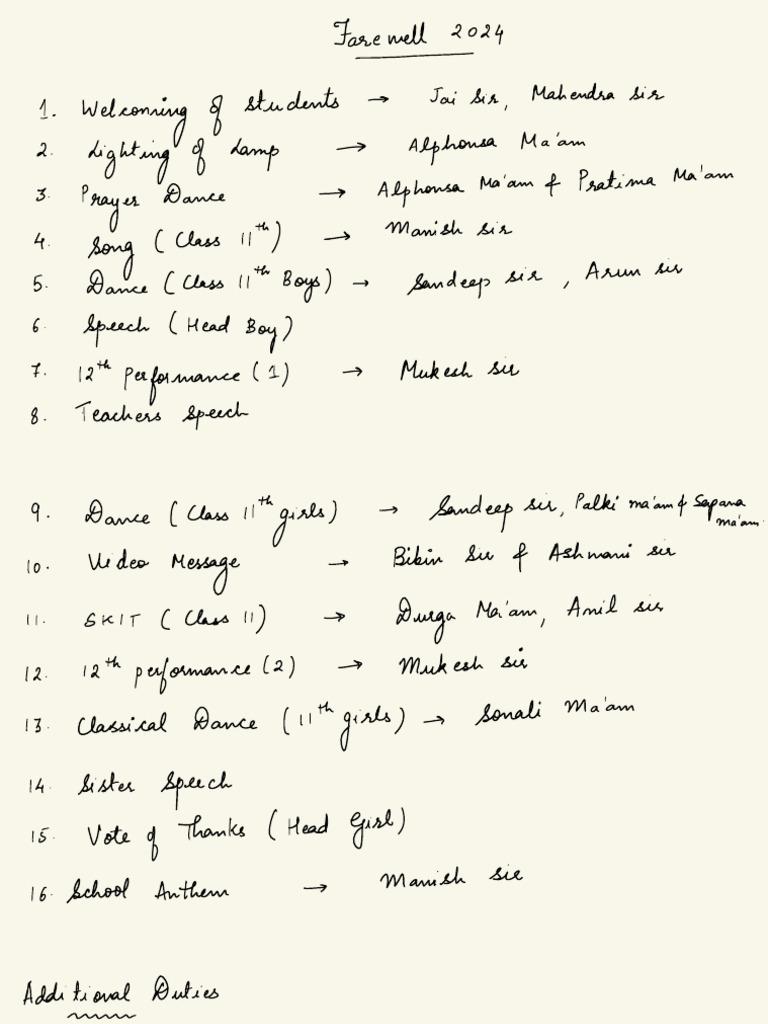 Farewell 2024
1. Welcoming of students → Jai Sir, Mahendra Sir
2. Lighting of Lamp → Alphonsa Ma'am
3. Prayer Dance → Alphonsa Ma'am & Pratima Ma'am
4. Song (Class 11th) → Manish Sir
5. Dance (Class 11th Boys) → Sandeep Sir, Arun Sir
6. Speech (Head Boy)
7. 12th performance (1) → Mukesh Sir
8. Teachers Speech
9. Dance (Class 11th girls) → Sandeep Sir, Palki ma'am & Sapana ma'am
10. Video Message → Bibin Sir & Ashwani Sir
11. SKIT (Class 11) → Durga Ma'am, Anil Sir
12. 12th performance (2) → Mukesh Sir
13. Classical Dance (11th girls) → Sonali Ma'am
14. Sister Speech
15. Vote of Thanks (Head Girl)
16. School Anthem → Manish Sir
Additional Duties